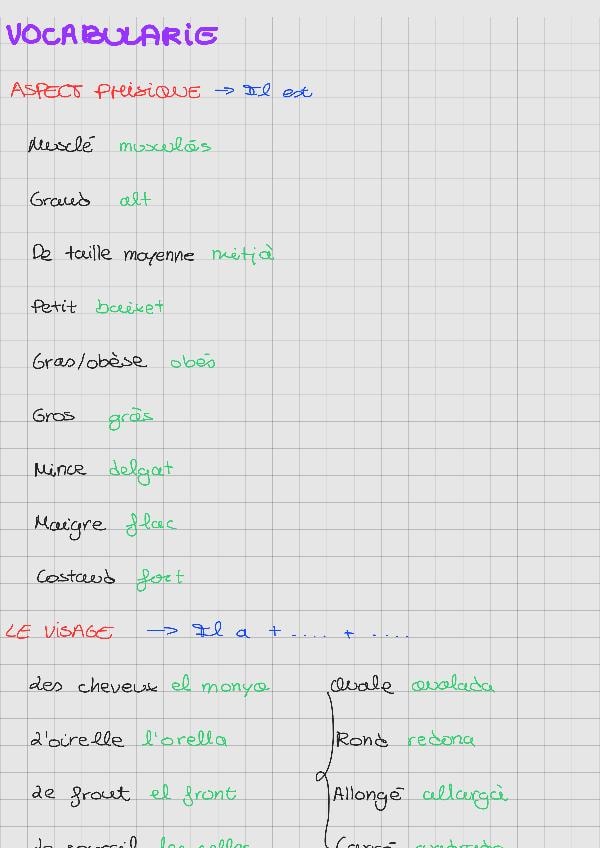 VOCABULARIE
ASPECT PHISIQUE → Il est
Musclé musculós
Grand alt
De taille moyenne mitjà
Petit baixet
Gras/obèse obés
Gros gràs
Mince delgat
Maigre flac
Costaud fort
LE VISAGE → Il a + .... + ....
des cheveux el monyo Ovale ovalada
d'oirelle l'orella Rond redona
de front el front Allongé allargà